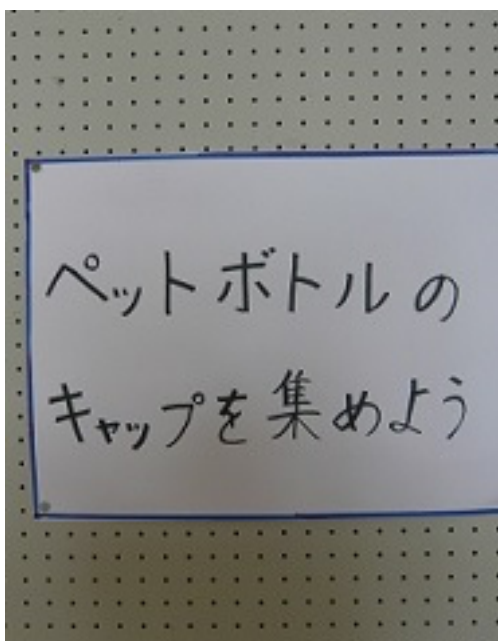 ペットボトルの
キャップを集めよう